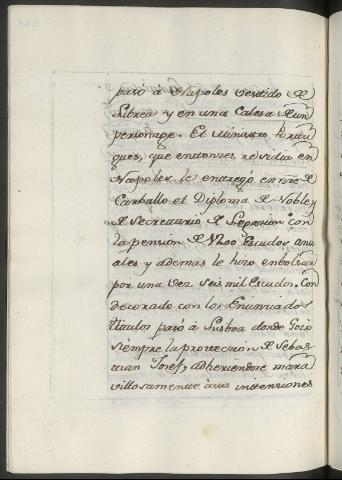 pasó à Napoles vestido de
Librea y en una Calesa de un
personage. El Ministro Portu
gues, que entonces residia en
Napoles le entregó en nre de
Carballo el Diploma de Noble y
de Secretario de Legacion con
la pension de 1200 Escudos anu
ales y ademas le hizo embolsar
por una vez seis mil Escudos. Con
decorado con los Enunciados
titulos pasó à Lisboa donde Gozó
siempre la proteccion de Sebas
tian Josef, adheriendose mara
villosamente à sus intenciones